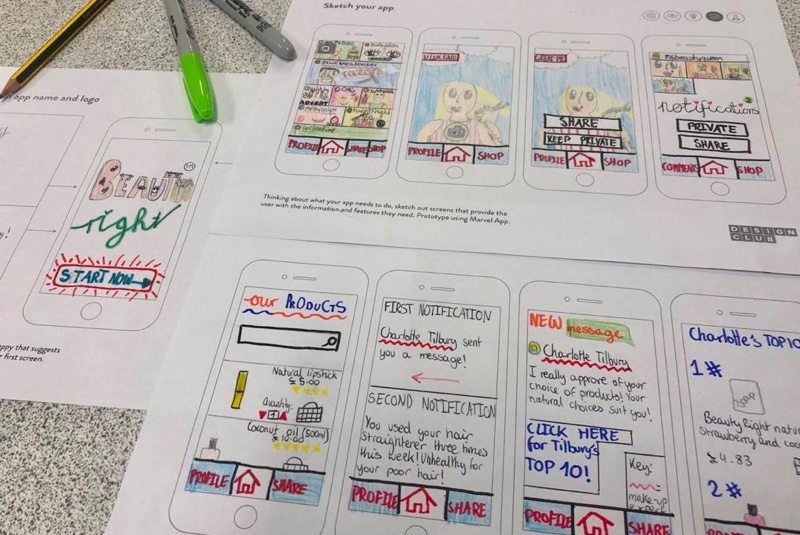 Sketch your app
app name and logo
BEAUTY
right
START NOW
PROFILE
SHOP
PROFILE
SHOP
SHARE
KEEP PRIVATE
PROFILE
SHOP
notifications
2
PRIVATE
SHARE
SHOP
Thinking about what your app needs to do, sketch out screens that provide the
user with the information and features they need. Prototype using Marvel App.
DESIGN
CLUB
appy that suggests
r first screen.
our PRODUCTS
Natural lipstick
£5.00
Quantity:
1
Coconut oil (500ml)
£10.00
PROFILE
SHARE
FIRST NOTIFICATION
Charlotte Tilbury sent
you a message!
SECOND NOTIFICATION
You used your hair
straightener three times
this week! Unhealthy for
your poor hair!
PROFILE
SHARE
NEW message
Charlotte Tilbury
I really approve of your
choice of products! Your
natural choices suit you!
CLICK HERE
for Tilbury's
TOP 10!
Key:
=
make-up
expert
PROFILE
SHARE
Charlotte's TOP 10
1#
Beauty Right natu
Strawberry and coc
£4.83
2#